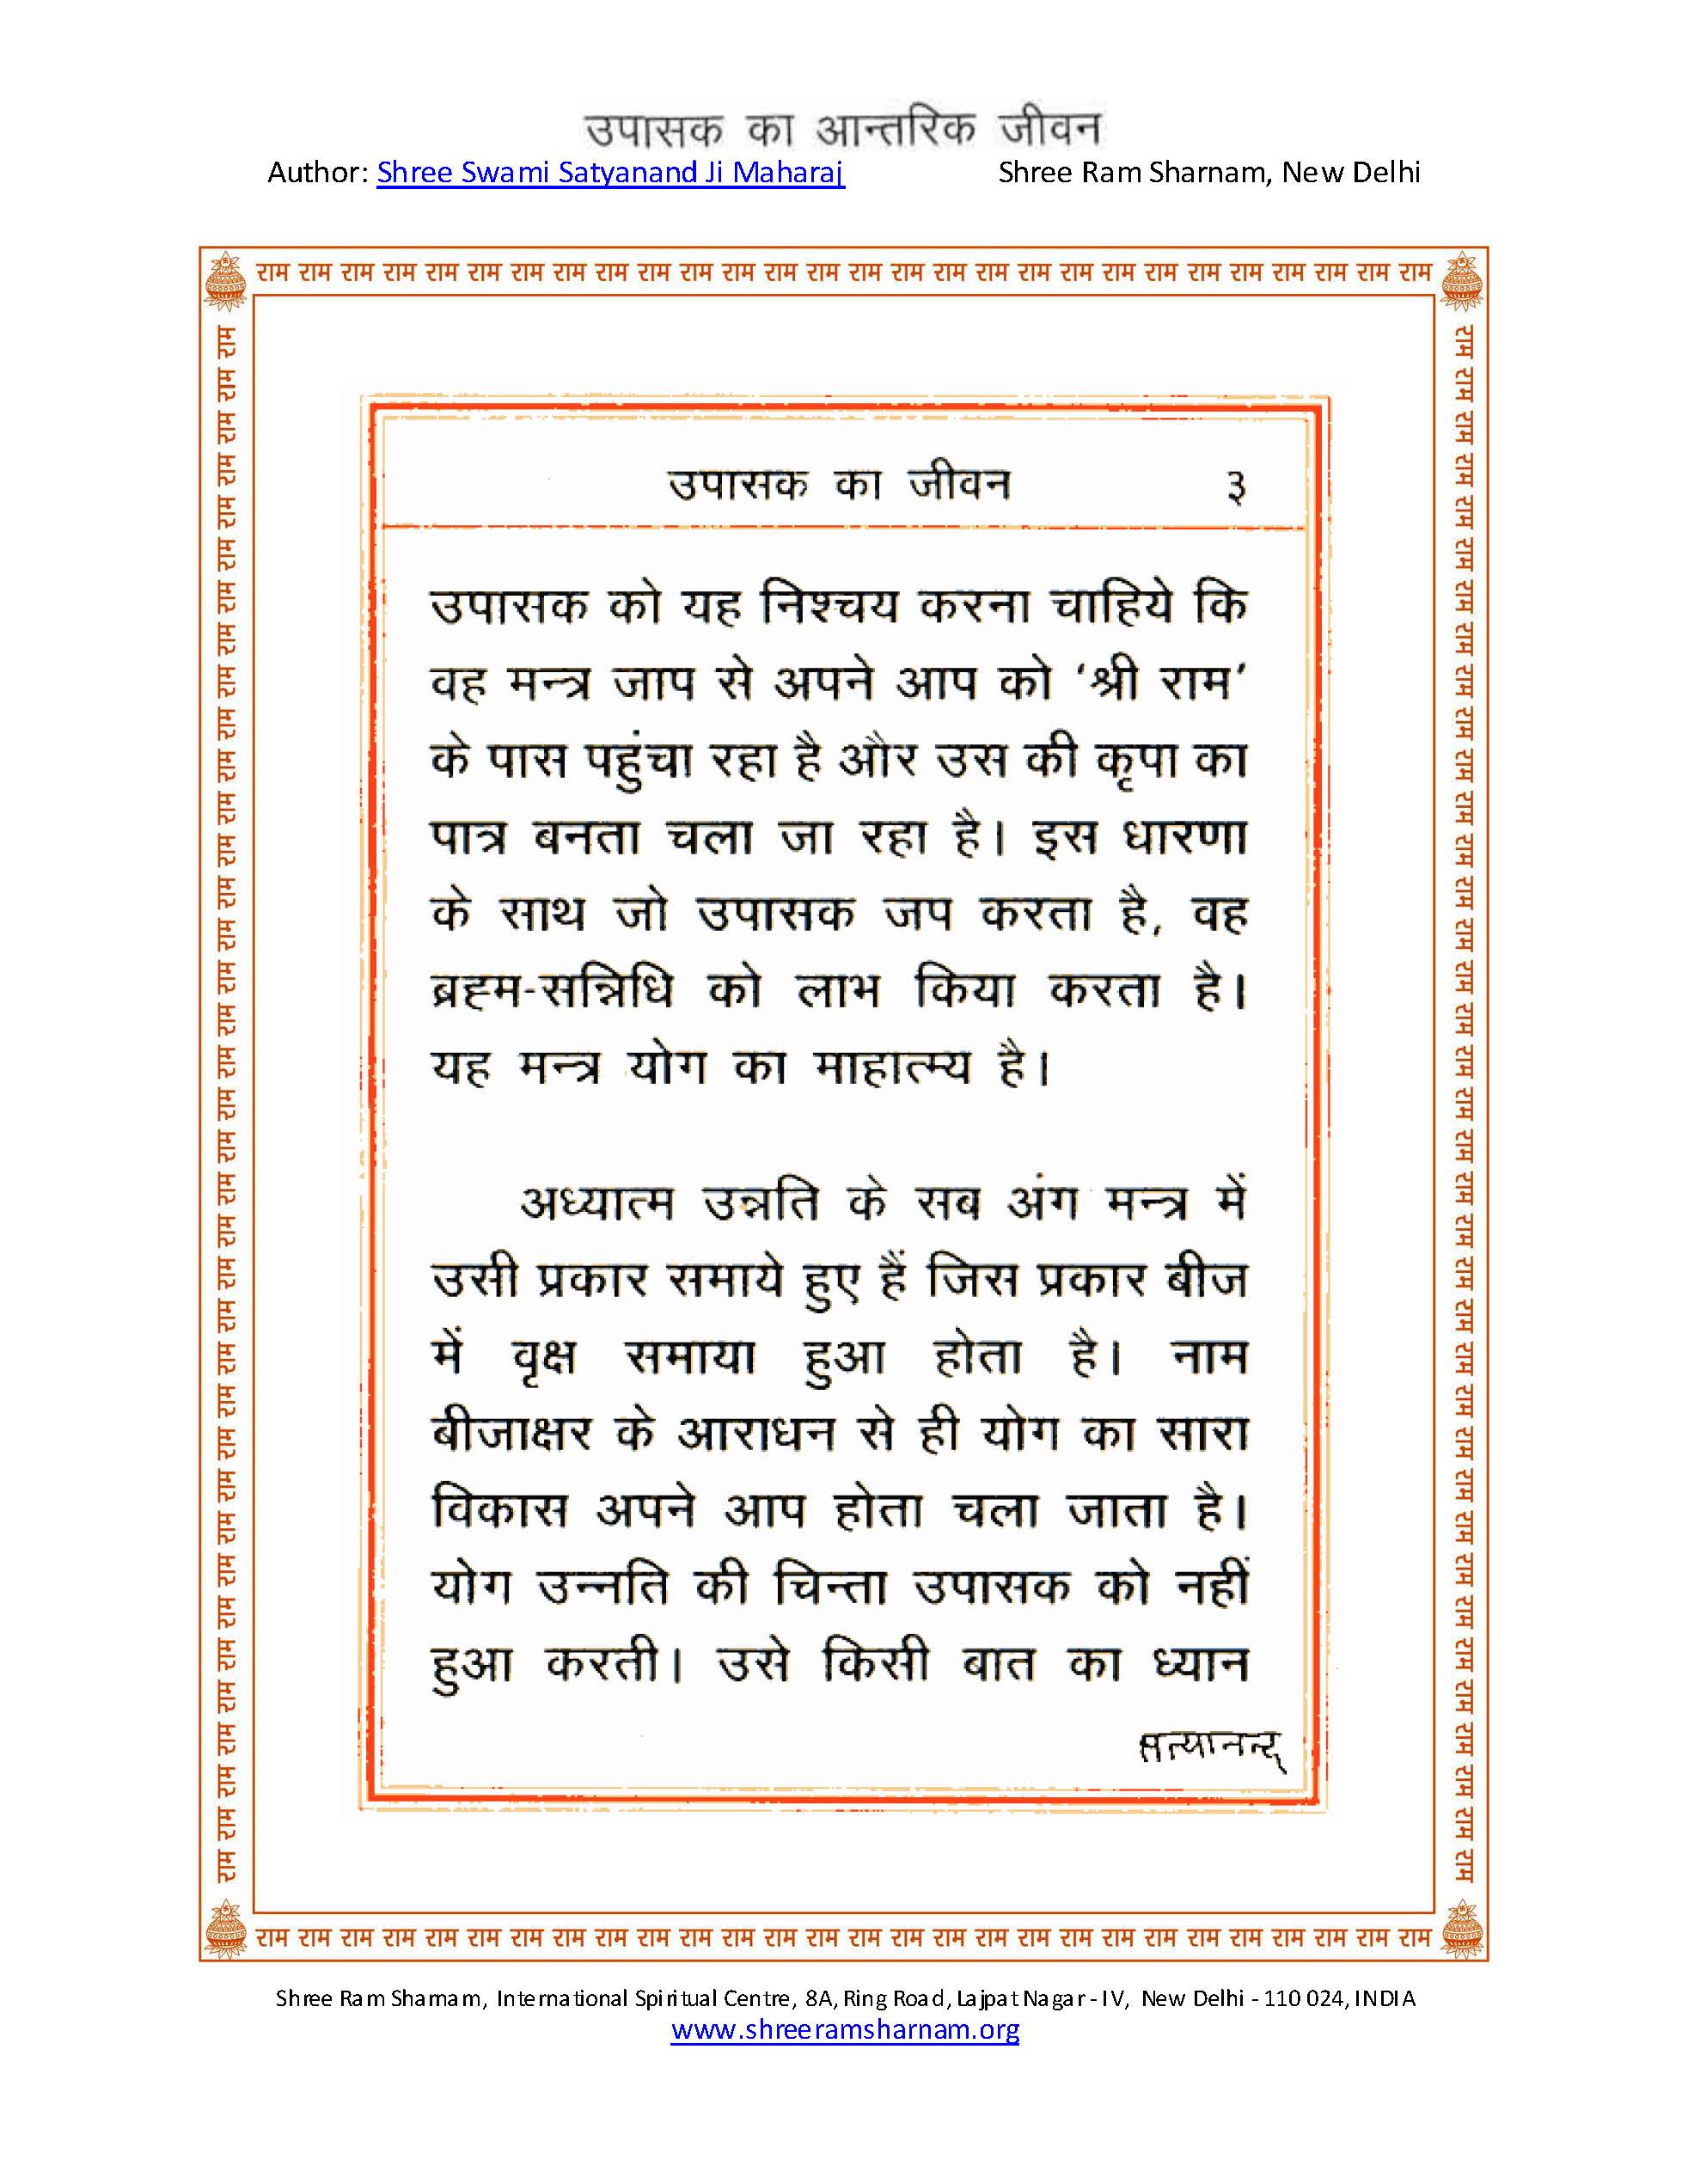 उपासक का आन्तरिक जीवन
Author: Shree Swami Satyanand Ji Maharaj Shree Ram Sharnam, New Delhi
राम राम राम राम राम राम राम राम राम राम राम राम राम राम राम राम राम राम राम राम राम राम राम राम राम राम राम राम
उपासक का जीवन ३
उपासक को यह निश्चय करना चाहिये कि
वह मन्त्र जाप से अपने आप को ‘श्री राम’
के पास पहुंचा रहा है और उस की कृपा का
पात्र बनता चला जा रहा है। इस धारणा
के साथ जो उपासक जप करता है, वह
ब्रह्म-सन्निधि को लाभ किया करता है।
यह मन्त्र योग का माहात्म्य है।
अध्यात्म उन्नति के सब अंग मन्त्र में
उसी प्रकार समाये हुए हैं जिस प्रकार बीज
में वृक्ष समाया हुआ होता है। नाम
बीजाक्षर के आराधन से ही योग का सारा
विकास अपने आप होता चला जाता है।
योग उन्नति की चिन्ता उपासक को नहीं
हुआ करती। उसे किसी बात का ध्यान
सत्यानन्द
राम राम राम राम राम राम राम राम राम राम राम राम राम राम राम राम राम राम राम राम राम राम राम राम राम राम राम राम राम राम राम राम राम राम राम राम राम
राम राम राम राम राम राम राम राम राम राम राम राम राम राम राम राम राम राम राम राम राम राम राम राम राम राम राम राम राम राम राम राम राम राम राम राम राम
राम राम राम राम राम राम राम राम राम राम राम राम राम राम राम राम राम राम राम राम राम राम राम राम राम राम राम राम
Shree Ram Sharnam, International Spiritual Centre, 8A, Ring Road, Lajpat Nagar - IV, New Delhi - 110 024, INDIA
www.shreeramsharnam.org